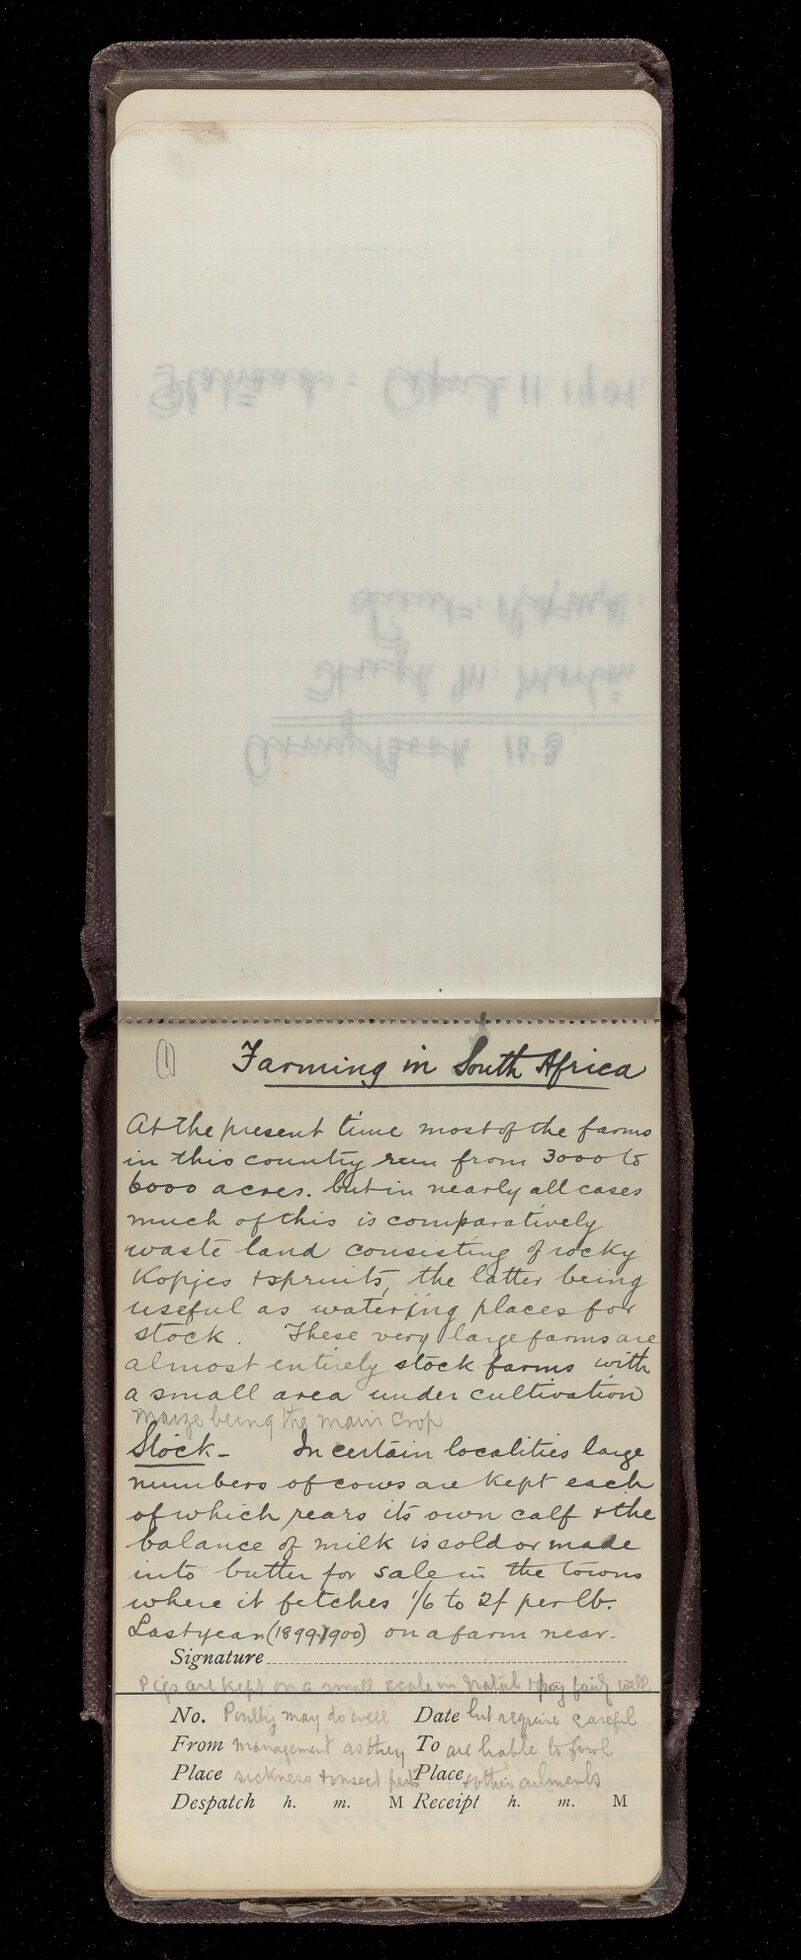 (1) Farming in South Africa
At the present time most of the farms
in this country run from 3000 to
6000 acres. but in nearly all cases
much of this is comparatively
waste land consisting of rocky
Kopjes & spruits, the latter being
useful as watering places for
stock. These very large farms are
almost entirely stock farms with
a small area under cultivation
maize being the main crop
Stock - In certain localities large
numbers of cows are kept each
of which rears its own calf & the
balance of milk is sold or made
into butter for sale in the towns
where it fetches 1/6 to 2/ per lb.
Last year (1899/1900) on a farm near.
Signature
Pigs are kept on a small scale in Natal & pay fairly well
No. Poultry may do well Date but require careful
From management as they To are liable to fowl
Place sickness & insect pests Place & other ailments
Despatch h. m. M Receipt h. m. M